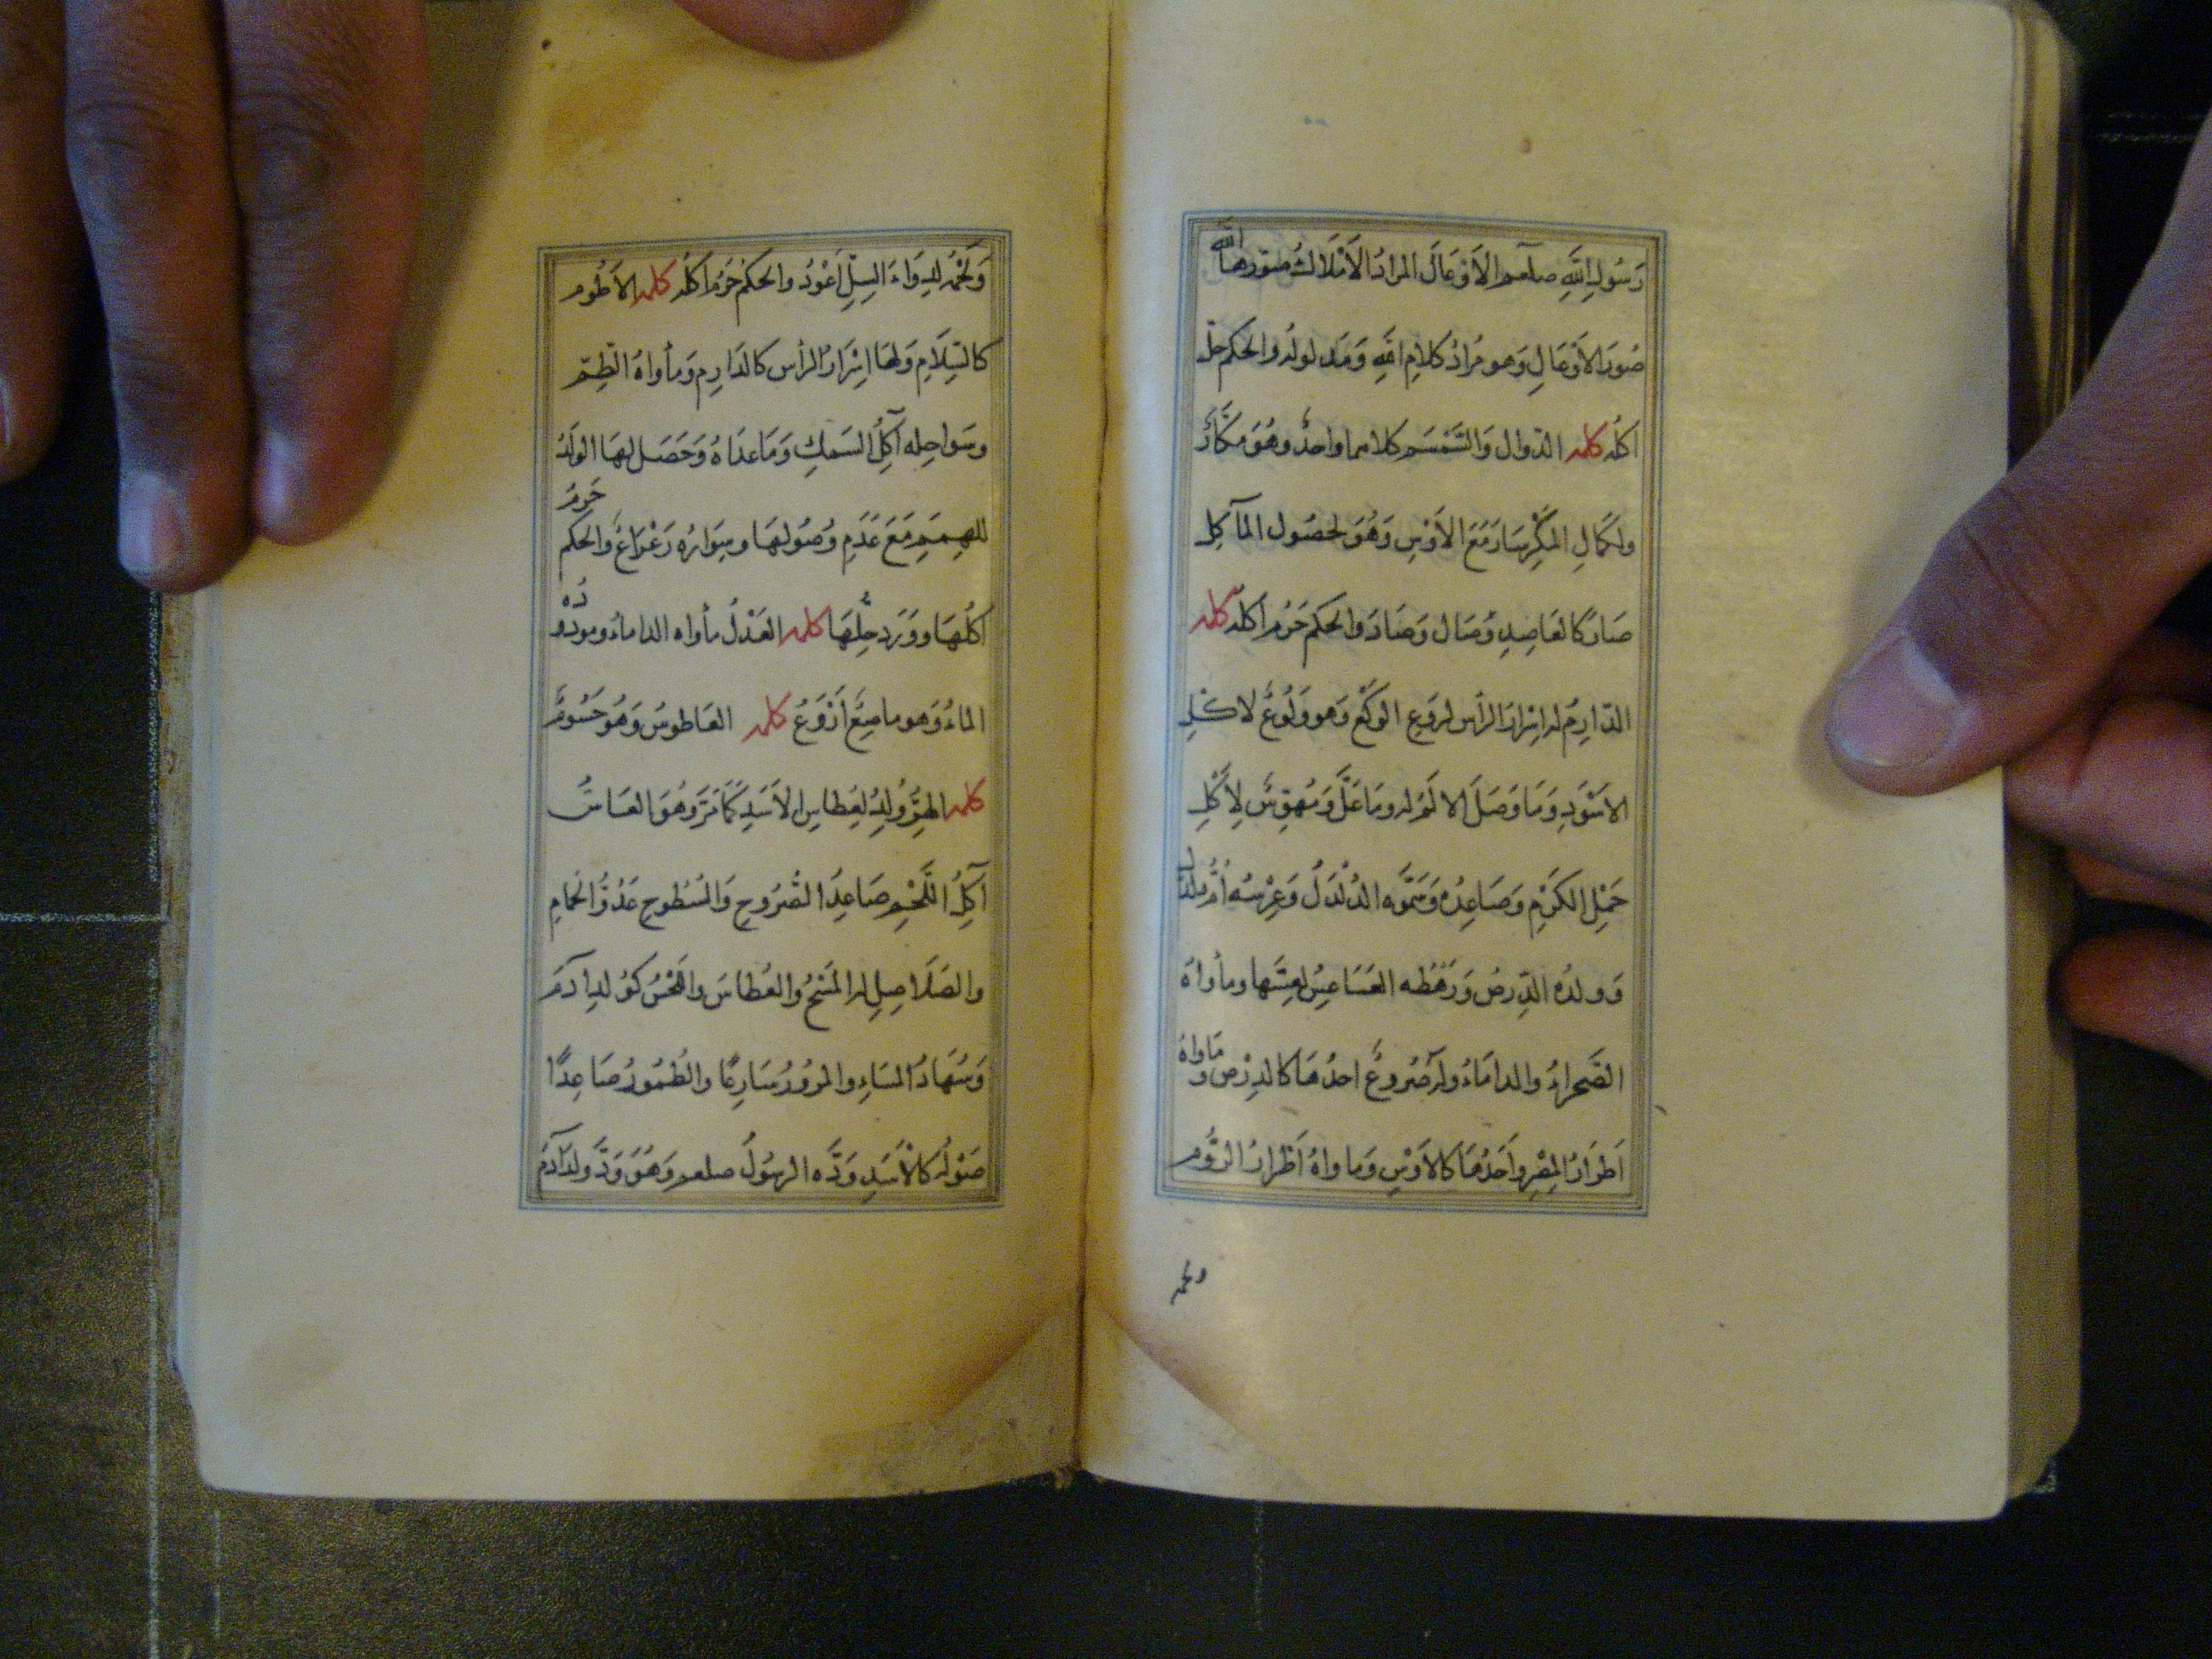 رَسُولِ اللهِ صلعم الاَوْعَالَ المرادُ الاَمْلَاكُ صوّرها الله
صُوَرَ الاَوْعَالِ وَهو مُرادُ كلامِ اللهِ وَمَدلولُه والحكم حلّ
اكله كلمه الدّوال وَالسَّمْسَم كلاهما واحدٌ وهُوَ مكّارٌ
ولكمَالِ المَكْرِ سَارَ مَعَ الاَوْسِ وَهُوَ لحصُول المآكل
صَارَ كالعَاصِدِ وَصَال وَصَادَ والحكم حَرُمَ اكله كلمه
الدّارِمُ له اِسْرَارُ الرأس لروَعِ الوَكْعِ وَهو وَلُوعٌ لاكلِ
الاَسْوَدِ وَمَا وَصَلَ الا لَوْله وما عَلَّ وَمُهوّسٌ لِاَكْلِ
حَمْلِ الكَرْمِ وَصَاعِدُه وَسَمَّوه الدُلْدَلُ وَعِرْسُه اُمُّ دلدل
وَولدُه الدِّرصُ وَرَهْطُه العَسَاعِسُ لعسّها ومأواهُ
الصَّحراءُ والداماءُ وله صُروعٌ احدُهَا كالدِرْصِ ومَاواهُ
اَطوَارُ المِصْرِ واَحَدُهَا كالاَوْسِ وَماواهُ اَطْرارُ الرُّومِ
ولحمه
وَلَحْمُه لدِوَاءِ السِلِّ اَعْوَدُ والحكمُ حَرُمَ اكله كلمه الاَطُوم
كالسِّلَامِ وَلهَا اِسْرَارُ الرأس كالدَارِم وَمأواهُ الطِمّ
وسَوَاحِله آكِلُ السَمكِ وَمَا عدَاهُ وَحَصَل لهَا الولَدُ
للهِمَمِ مَعَ عَدَمِ وُصُولهَا وسِوَارُه رَعْرَاعٌ والحكم حَرُمَ
اكلُهَا ووَرَد حِلّهَا كلمه العَدْلُ مأواه الداماءُ وموردُه
الماءُ وَهو ما سِيعَ اَرْوَعُ كلمه العَاطوسُ وَهُوَ حَسُومٌ
كلمه الهِرُّ وُلِدَ لعِطاسِ الاَسَدِ كَمَا مَرَّ وَهُوَ العَسَاسُ
آكِلُ اللَّحْمِ صَاعِدُ الصُّرُوحِ وَالسُطُوحِ عَدُوُّ الحَمامِ
والصَلَاصِلِ له المَسْحُ والعُطاسُ واللَّحْسُ كوُلدِ آدَمَ
وَسُهَادُ المَسَاءِ والمرُورُ سَارِعًا والطُمُورُ صَاعِدًا
صَوْلُه كالاَسَدِ وَدَّه الرسُولُ صلعم وَهُوَ وَدَّ ولدَ آدَمَ